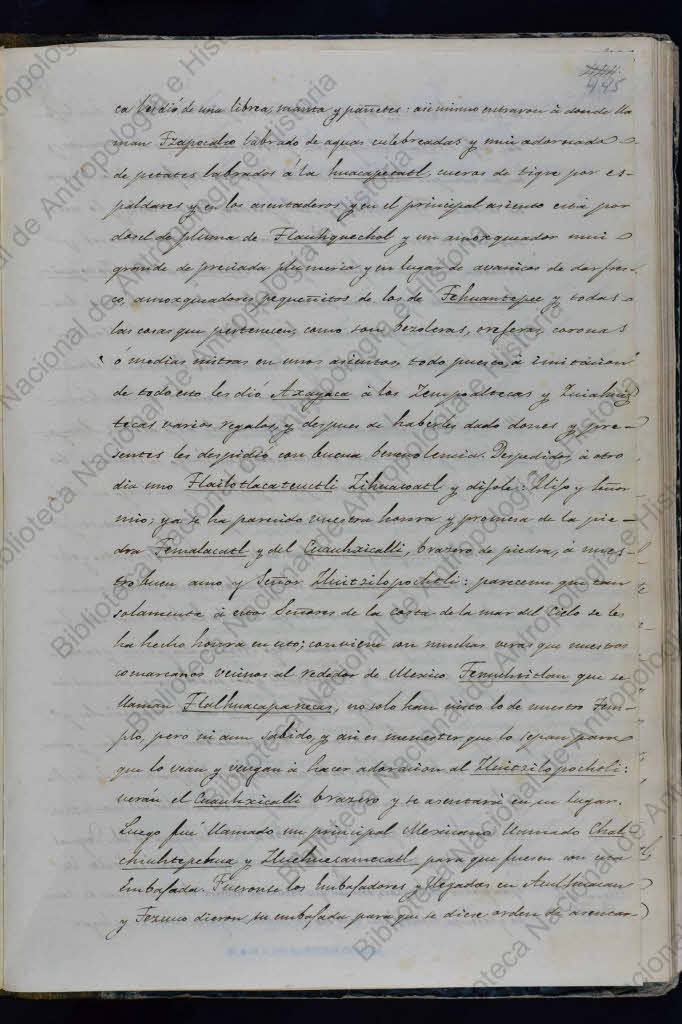 445
ca les dió de una librea, manta y pañetes: asi mismo entraron à donde lla
man Tzapocalco labrado de aguas culebreadas y mui adornado
de petates labrados á la huacapetatl, cueros de tigre por es-
paldares y en los asentaderos y en el principal asiento está por
dosel de pluma de Tlauhquechol y un amoxqueador mui
grande de preciada plumeria y en lugar de avanicos de dar fres-
co, amoxqueadores pequeñitos de los de Tehuantepec y todas
las cosas que pertenecen, como son bezoleras, orejeras, coronas
ó medias mitras en unos asientos, todo puesto, à imitacion
de todo esto les dió Axayaca à los Zempoaltecas y
tecas varios regalos, y despues de haberles dado dones y pre-
sentes les despidió con buena benevolencia. Despedidos, à otro
dia uno Tlailotlacateuctli Zihuacoatl y díjole: Hijo y Señor
mio; ya se ha parecido vuestra honra y promesa de la pie-
dra Temalacatl y del Cuauhxicalli, brazero de piedra, á nues-
tro buen amo y Señor Huitzilopochtli: pareceme que tan
solamente à estos Señores de la costa de la mar del Cielo se les
ha hecho honra en esto; conviene con muchas veras que nuestros
comarcanos vecinos al rededor de Mexico Tenuchtitlan que se
llaman Tlalhuacapanecas, no solo han visto lo de nuestro Tem-
plo, pero ni aun sabido, y asi es menester que lo sepan para
que lo vean y vengan à hacer adoracion al Huitzilopochtli:
verán el Cuauhxicalli brazero y se asentará en su lugar.
Luego fué llamado un principal Mexicano llamado Chal-
chiuhtepehua y Huehuecamecatl para que fuesen con esta
Embajada. Fueronse los Embajadores y llegados en Aculhuacan
y Tezcuco dieron su embajada para que se diese orden de asentar
Biblioteca Nacional de Antropología e Historia